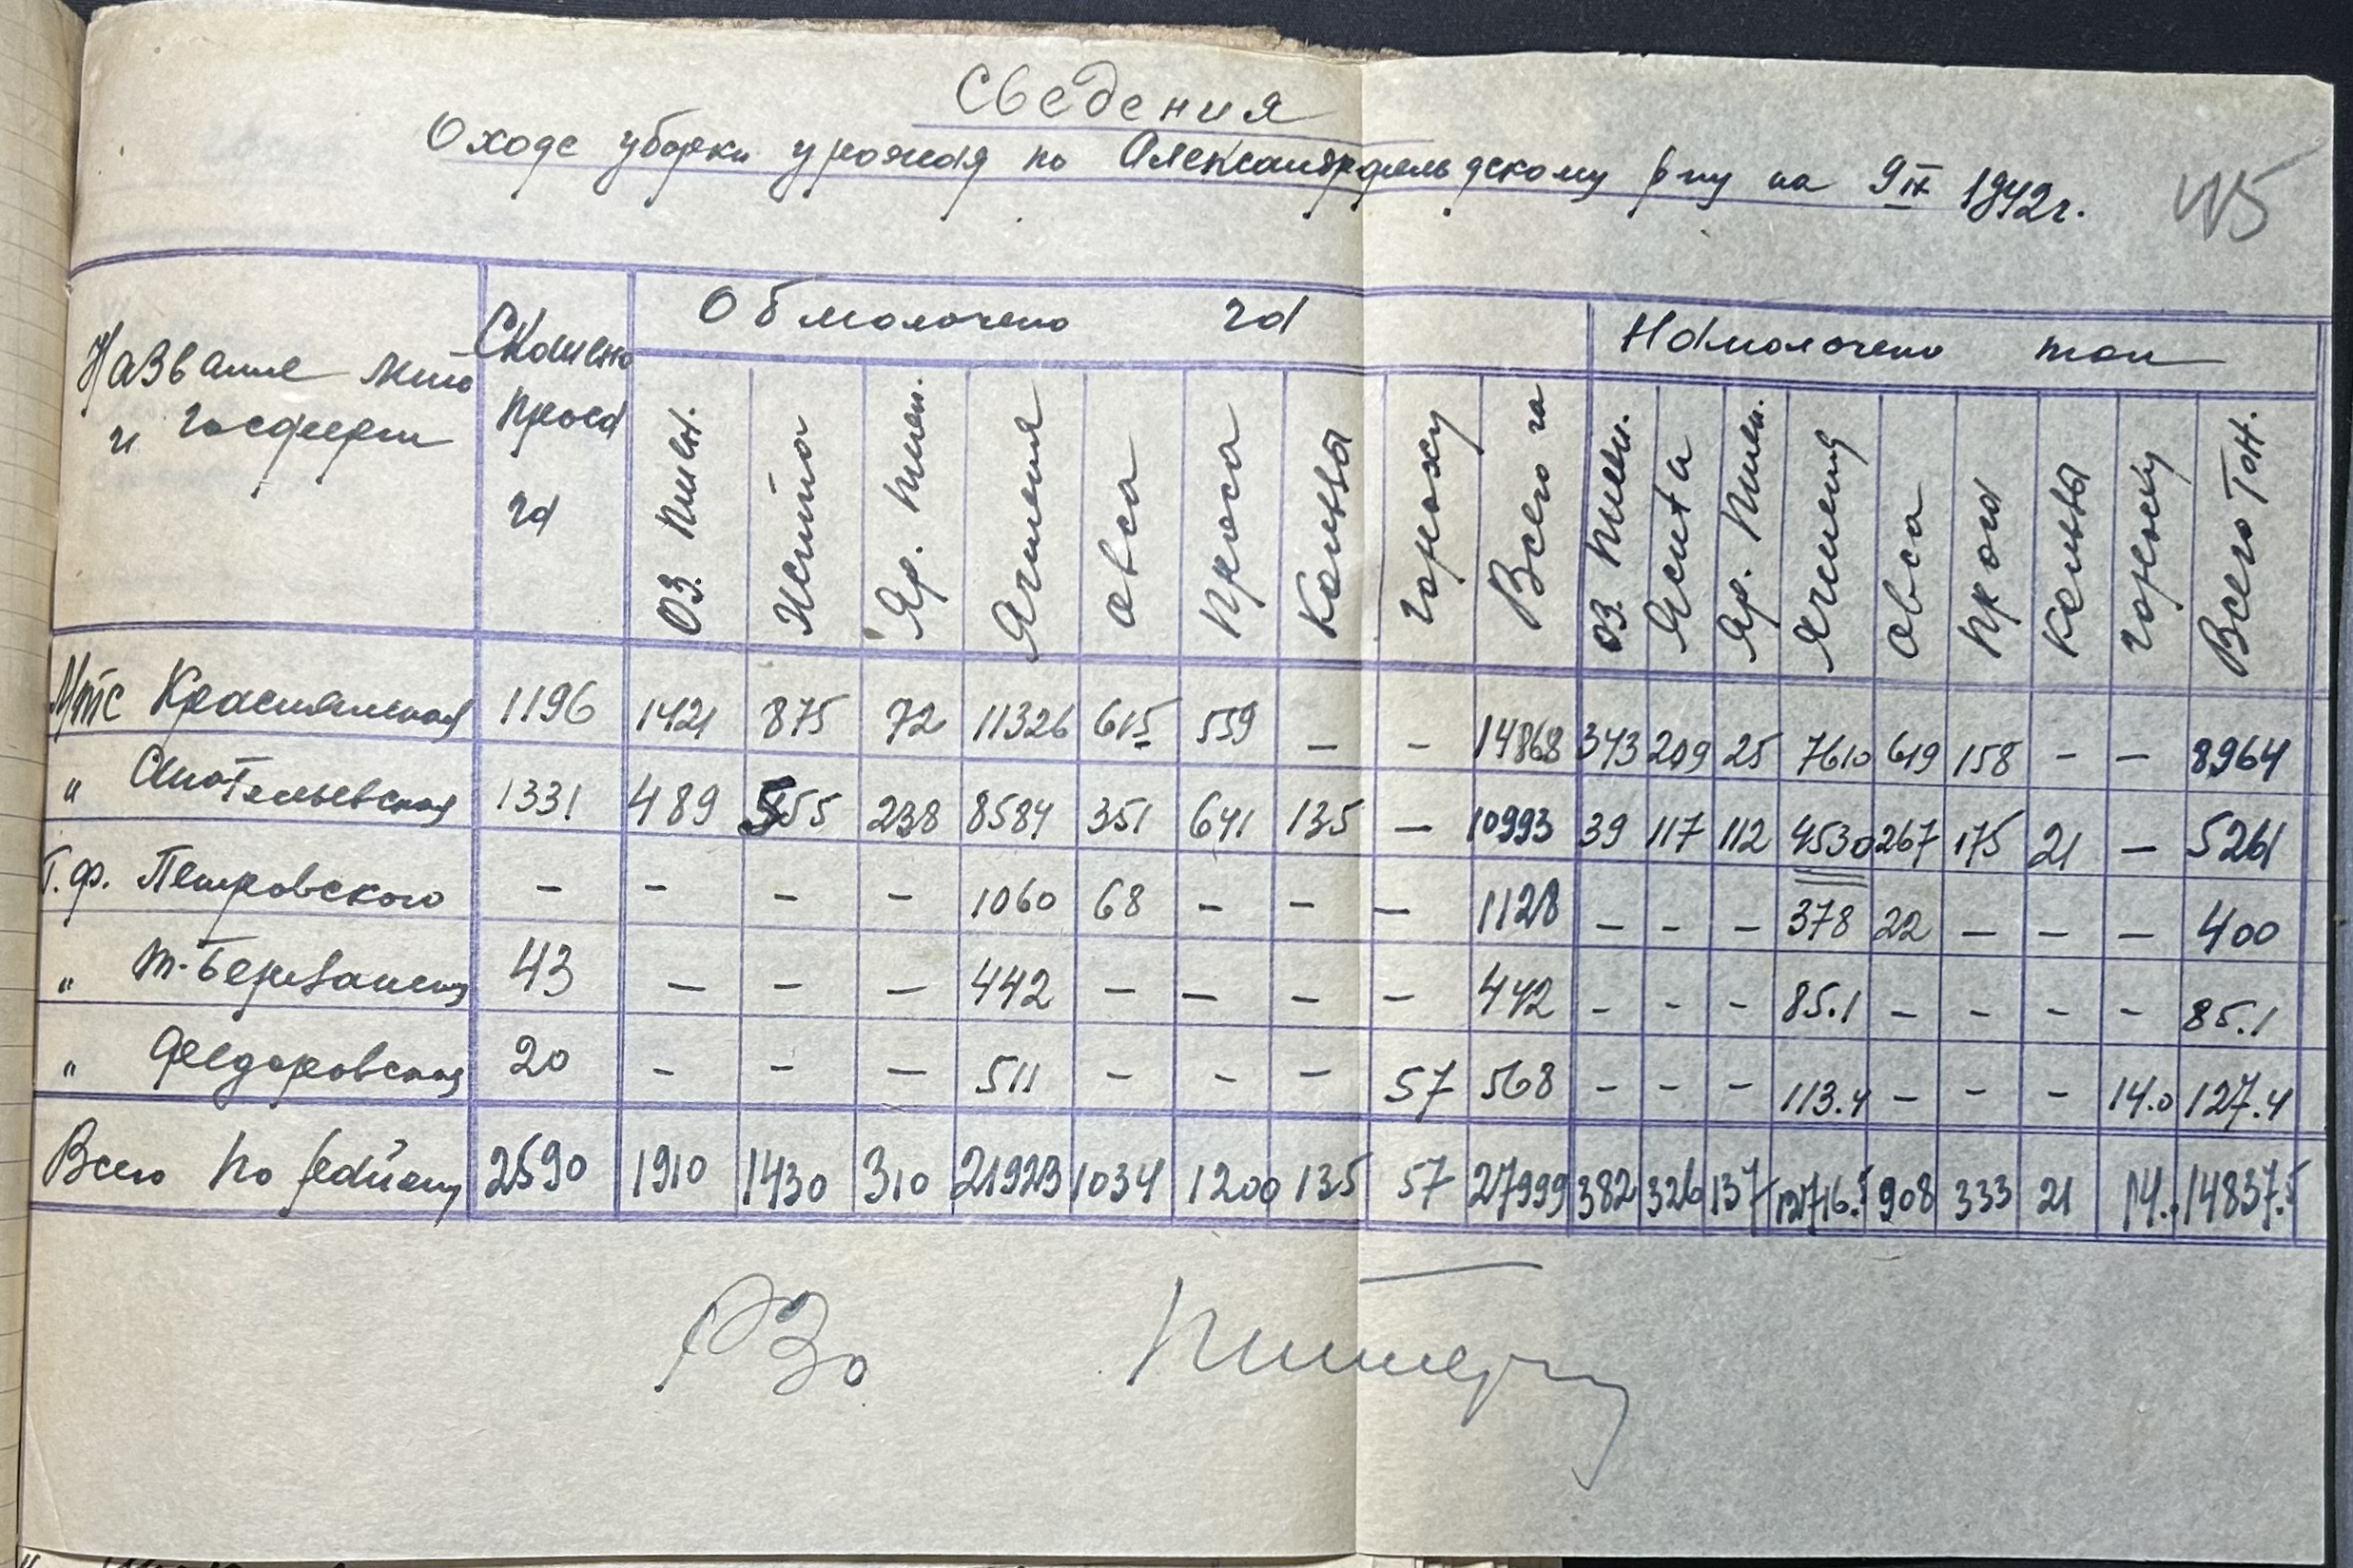 Сведения
О ходе уборки урожая по Александрфельдскому р-ну на 9 IX 1942 г.
Название мтс и госферм
Скошено проса га
Обмолочено га
Намолочено тон
Оз. пшен. Жита Яр. пшен. Ячменя Овса Проса Гороху Всего га Оз. пшен. Яр. пшен. Ячменя Овса Проса Гороху Всего тон.
Мтс 1196 1421 875 72 11326 615 559 – – 14868 343 209 25 7610 619 158 – – 8964
" 1331 489 555 238 8584 351 641 135 – 10993 39 117 112 4530 267 175 21 – 5261
Г.ф. Петровского – – – – 1060 68 – – – 1128 – – – 378 22 – – – 400
" 43 – – – 442 – – – – 442 – – – 85.1 – – – – 85.1
" Федоровская 20 – – – 511 – – – 57 568 – – – 113.4 – – – 14.0 127.4
Всего по району 2590 1910 1430 310 21923 1034 1200 135 57 27999 382 326 137 12716.5 908 333 21 14. 14837.5
РЗо